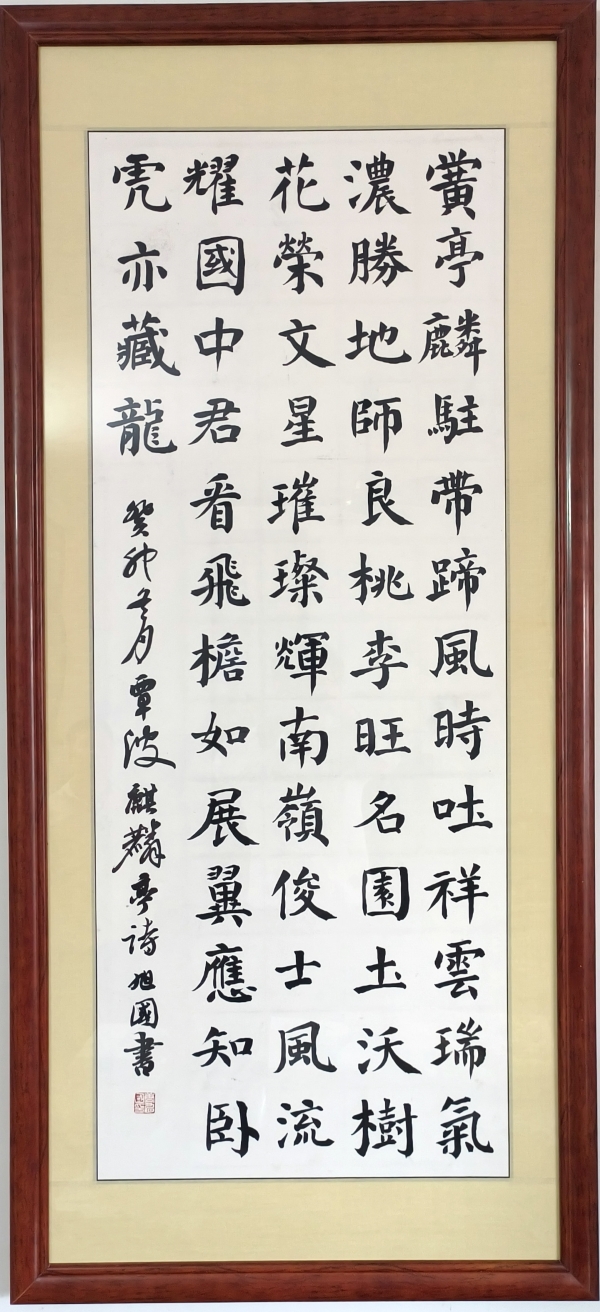 黌亭麟駐帶蹄風時吐祥雲瑞氣
濃勝地師良桃李旺名園土沃樹
花榮文星璀璨輝南嶺俊士風流
耀國中君看飛檐如展翼應知卧
虎亦藏龍 癸卯冬月覃波麒麟亭詩旭國書